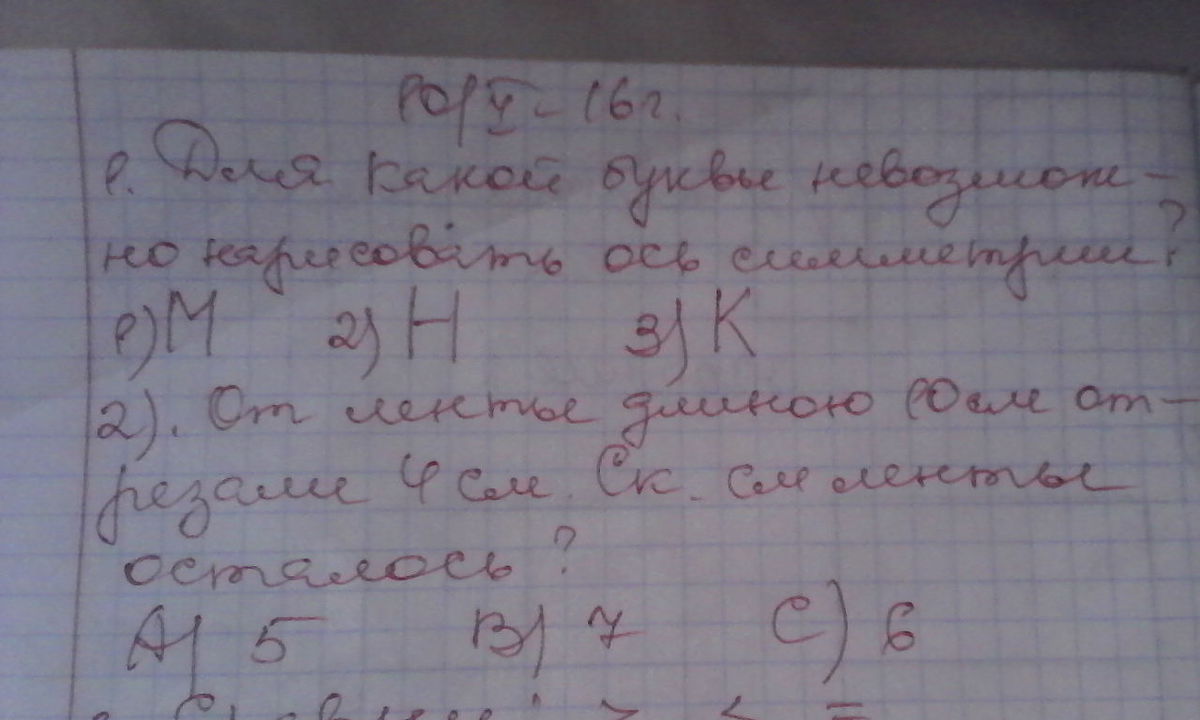 10/V - 16г.
1. Для какой буквы невозмож-
но нарисовать ось симметрии?
1) М 2) Н 3) К
2). От ленты длиною 10 см от-
резали 4 см. Ск. см ленты
осталось?
А) 5 В) 7 С) 6
> < =